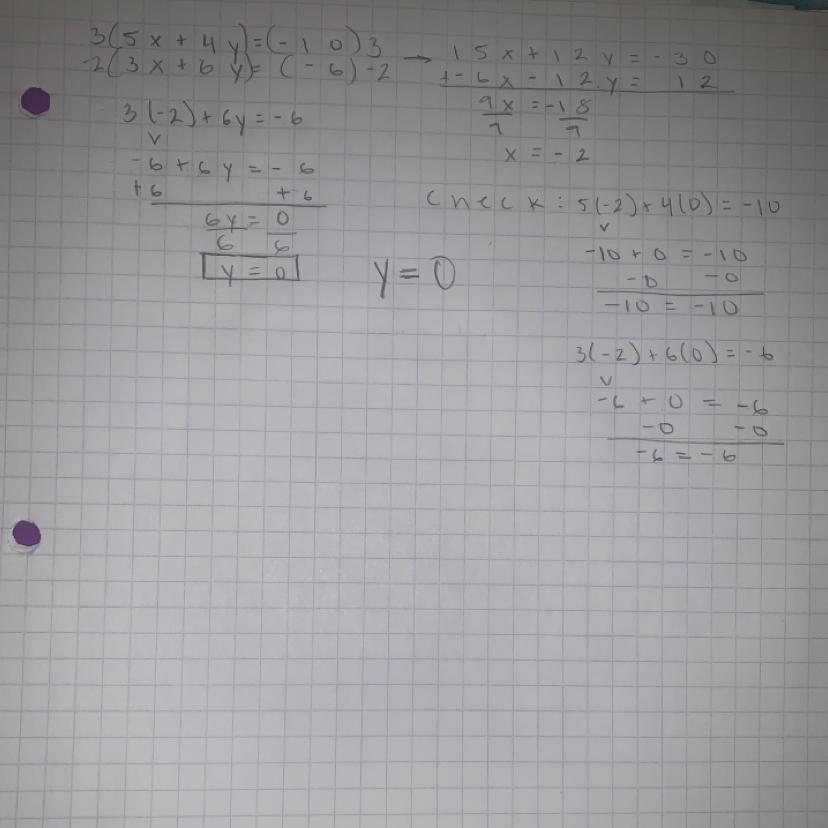 3(5x+4y)=(-10)3 → 15x+12y=-30
-2(3x+6y)=(-6)-2
+-6x-12y=12
9x=-18
9 9
x=-2
3(-2)+6y=-6
v
-6+6y=-6
+6 +6
6y=0
6 6
y=0
y=0
Check: 5(-2)+4(0)=-10
v
-10+0=-10
-0 -0
-10=-10
3(-2)+6(0)=-6
v
-6+0=-6
-0 -0
-6=-6